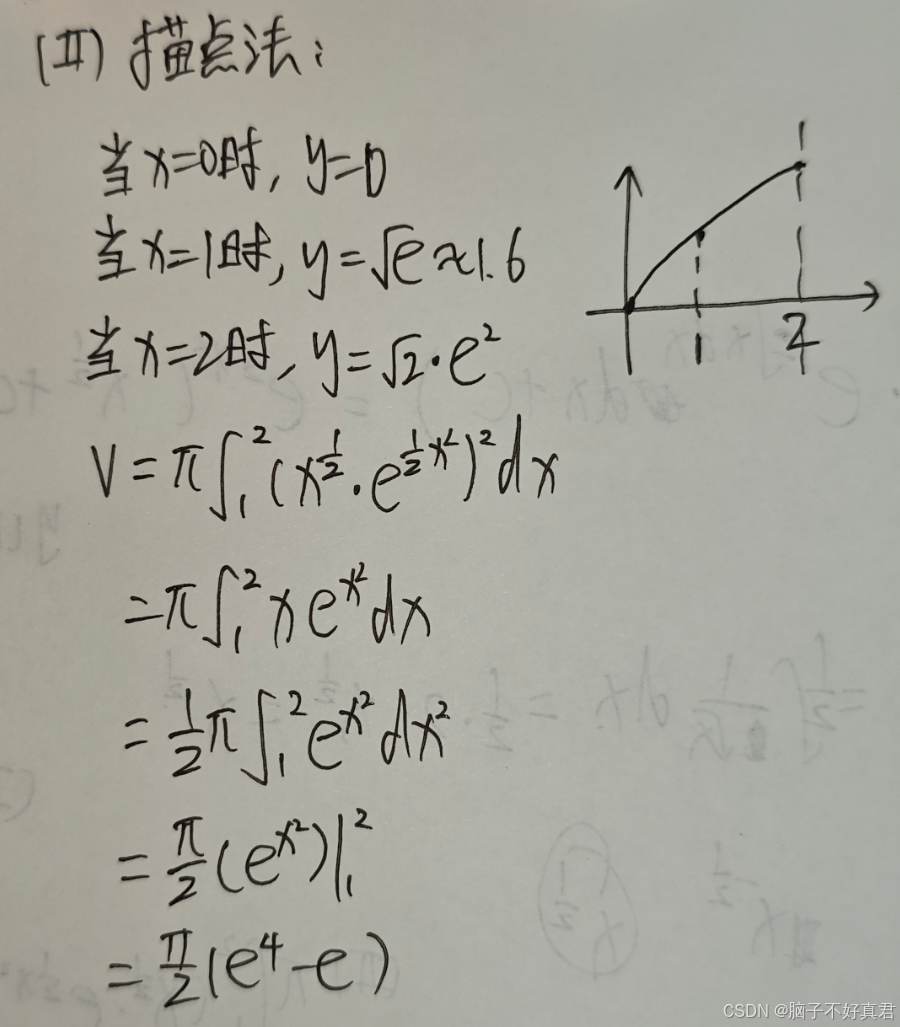 (Ⅱ) 描点法:
当x=0时, y=0
当x=1时, y=√e≈1.6
当x=2时, y=√2·e²
1 2
V=π∫₁²(x^{1/2}·e^{1/2x²})²dx
=π∫₁²xe^{x²}dx
=1/2π∫₁²e^{x²}dx²
=π/2(e^{x²})|₁²
=π/2(e⁴-e)
CSDN @脑子不好真君